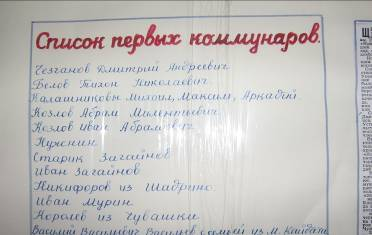 Список первых коммунаров.
Чезганов Дмитрий Андреевич
Белов Тихон Николаевич
Калашниковы Михаил, Максим, Аркадий
Козлов Абрам Милентьевич
Козлов Иван Абрамович
Кунонин
Старик Загайнов
Иван Загайнов
Никифоров из Шадрино
Иван Мурин
Королев из Чувашки
Василий Васильевич Васильев с семьёй из М.